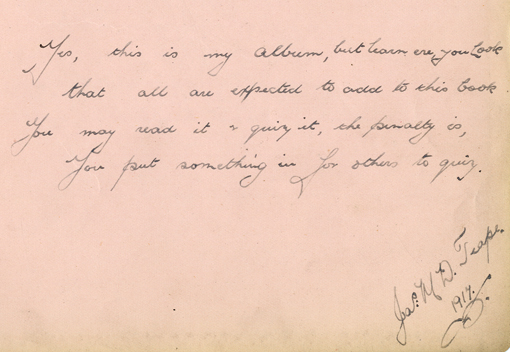 Yes, this is my album, but learn ere you look
that all are expected to add to this book.
You may read it & quiz it, the penalty is,
You put something in for others to quiz.
Jas. McD. Teape.
1917.